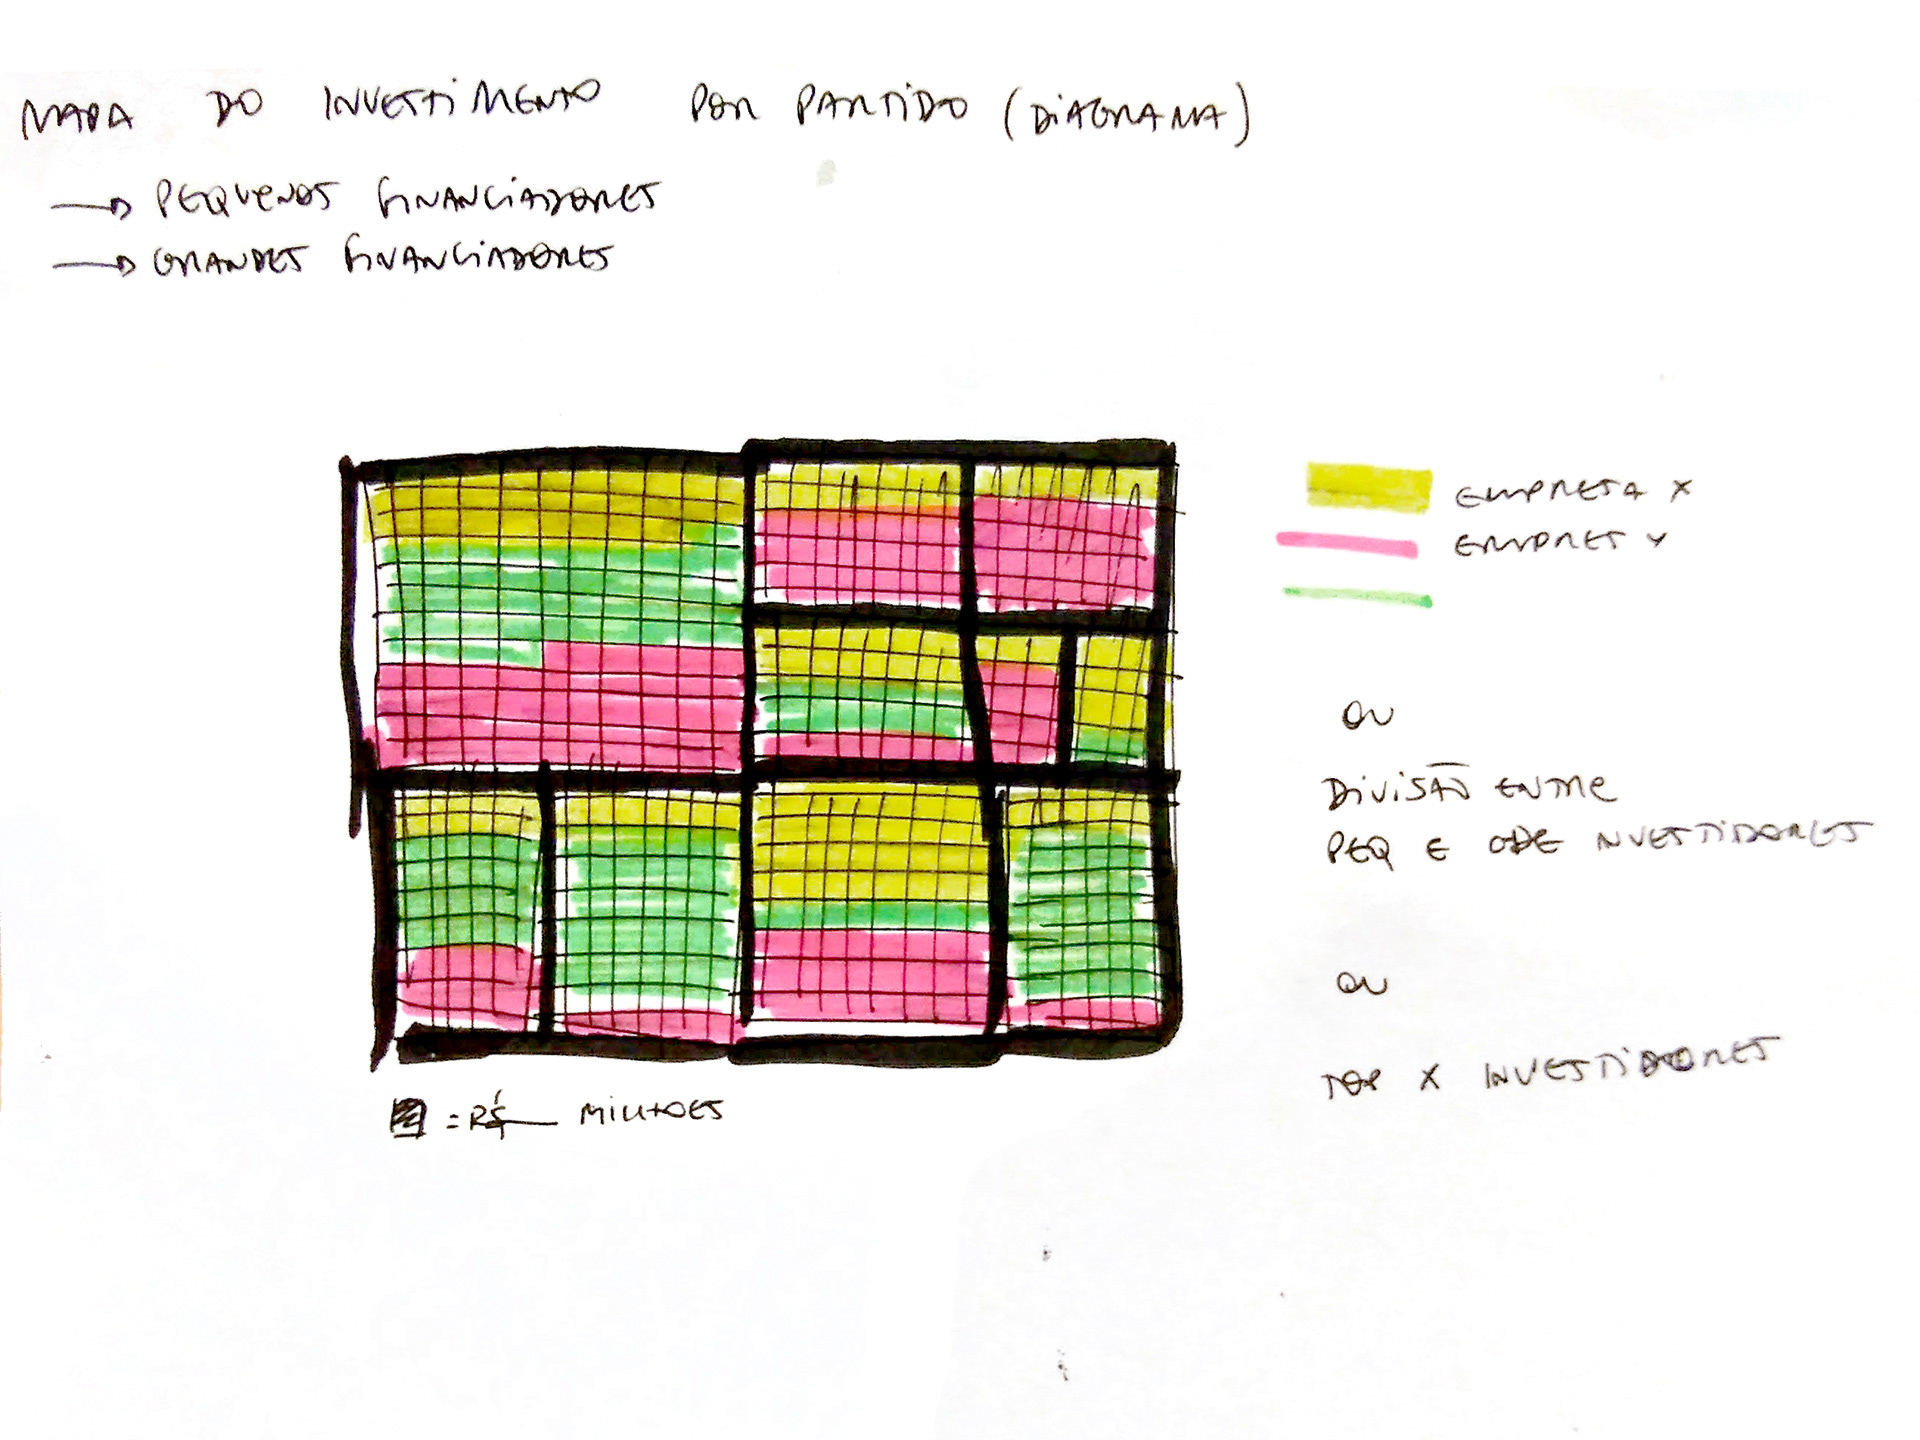 MAPA DO INVESTIMENTO POR PARTIDO (DIAGRAMA)
→ PEQUENOS FINANCIADORES
→ GRANDES FINANCIADORES
EMPRESA X
EMPRES Y
OU
DIVISÃO ENTRE
PEQ E GDE INVESTIDORES
OU
TOP X INVESTIDORES
= R$ __ MILHOES